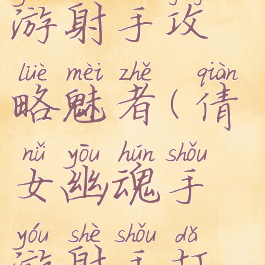 游射手攻
lüè mèi zhě qiàn
略魅者(倩
nǚ yōu hún shǒu
女幽魂手
yóu shè shǒu dǎ
游射手打